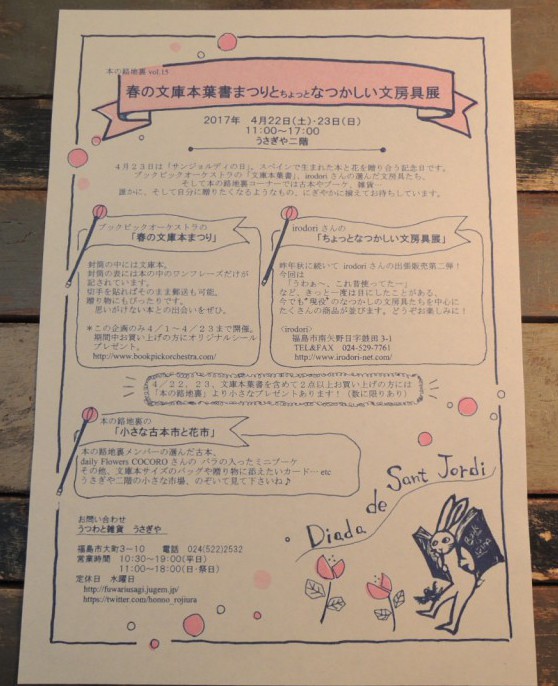 本の路地裏 vol.15
春の文庫本葉書まつりとちょっとなつかしい文房具展
2017年 4月22日(土)・23日(日)
11:00〜17:00
うさぎや二階
4月23日は「サンジョルディの日」。スペインで生まれた本と花を贈り合う記念日です。
ブックピックオーケストラの「文庫本葉書」、irodoriさんの選んだ文房具たち、
そして本の路地裏コーナーでは古本やブーケ、雑貨…
誰かに、そして自分に贈りたくなるようなもの、にぎやかに揃えてお待ちしています。
ブックピックオーケストラの
「春の文庫本まつり」
封筒の中には文庫本。
封筒の表には本の中のワンフレーズだけが
記されています。
切手を貼ればそのまま郵送も可能。
贈り物にもぴったりです。
思いがけない本との出会いをぜひ。
*この企画のみ4/1〜4/23まで開催。
期間中お買い上げの方にオリジナルシール
プレゼント。
http://www.bookpickorchestra.com/
irodori さんの
「ちょっとなつかしい文房具展」
昨年秋に続いて irodori さんの出張販売第二弾!
今回は
「うわぁ〜、これ昔使ってたー」
など、きっと一度は目にしたことがある、
今でも"現役"のなつかしの文房具たちを中心に
たくさんの商品が並びます。どうぞお楽しみに!
〈irodori〉
福島市南矢野目字鼓田3-1
TEL&FAX 024-529-7761
http://www.irodori-net.com/
4/22、23、文庫本葉書を含めて2点以上お買い上げの方には
「本の路地裏」より小さなプレゼントあります!(数に限りあり)
本の路地裏の
「小さな古本市と花市」
本の路地裏メンバーの選んだ古本、
daily Flowers COCORO さんの バラの入ったミニブーケ
その他、文庫本サイズのバッグや贈り物に添えたいカード…etc
うさぎや二階の小さな市場、のぞいて見て下さいね♪
Diada de Sant Jordi
お問い合わせ
うつわと雑貨 うさぎや
福島市大町3−10 電話 024(522)2532
営業時間 10:30〜19:00(平日)
11:00〜18:00(日・祭日)
定休日 水曜日
http://fuwariusagi.jugem.jp/
https://twitter.com/honno_rojiura